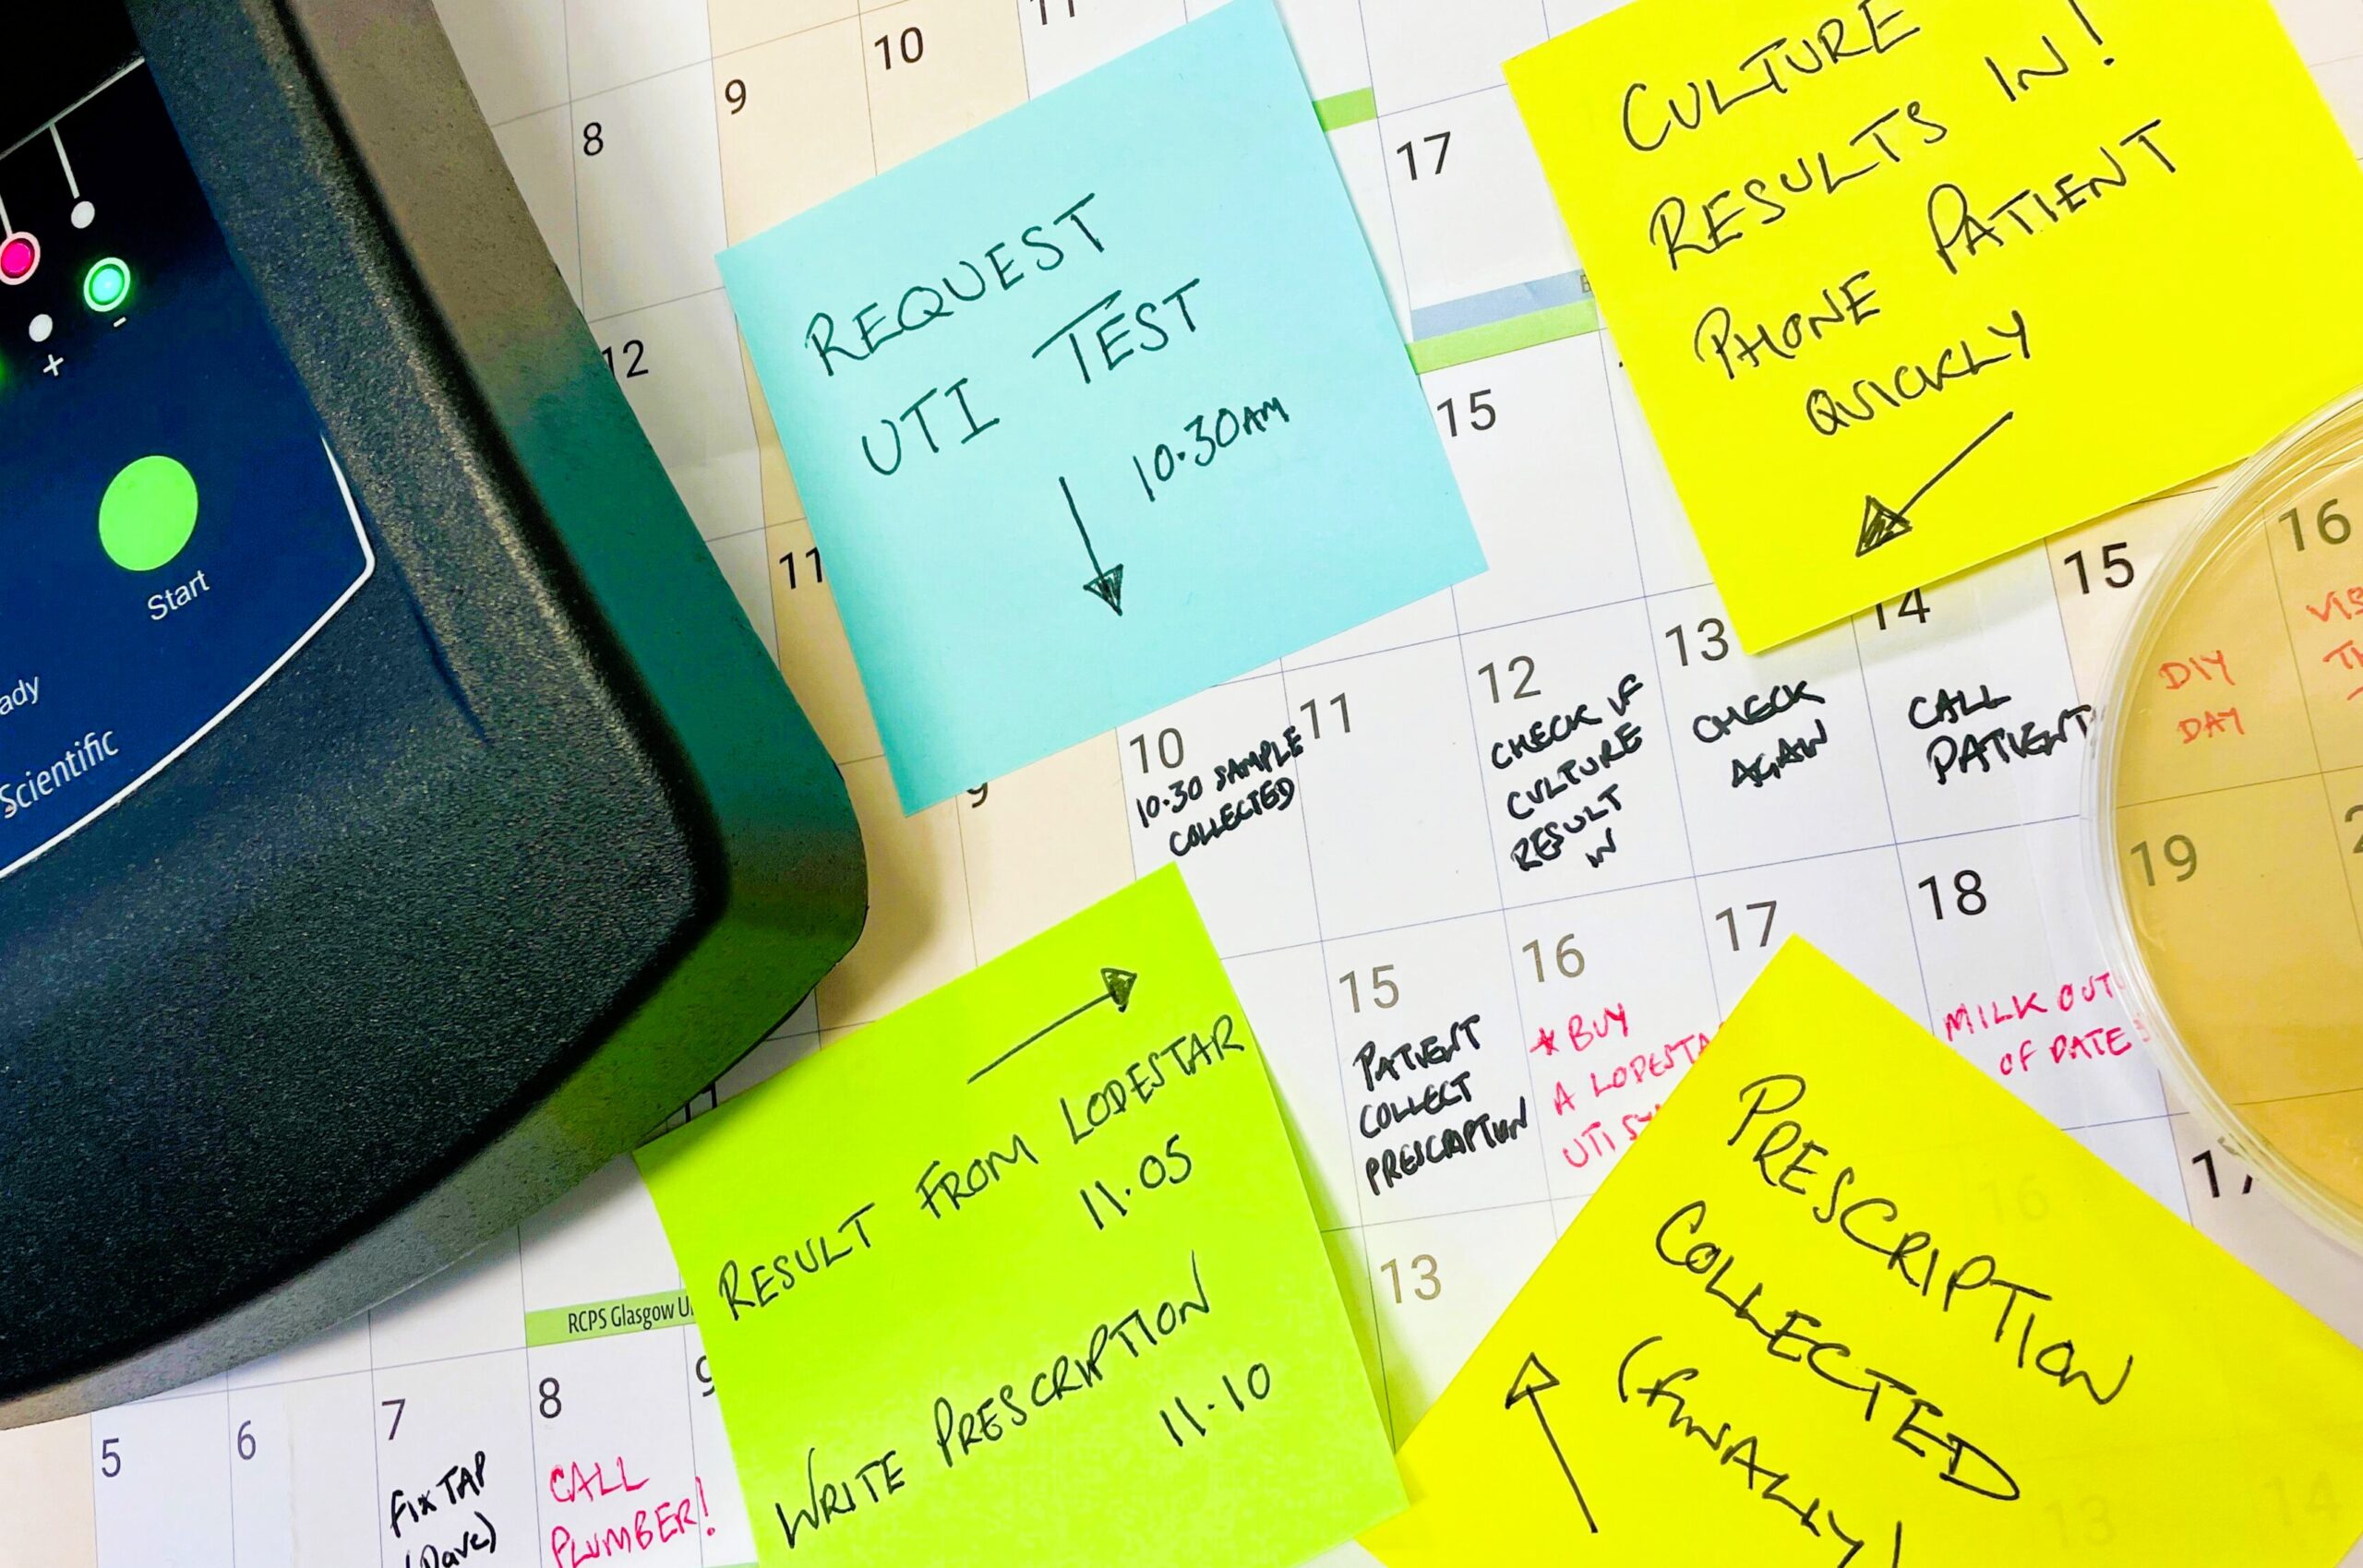 11
10
9
8
17
12
11
15
REQUEST
UTI TEST
10.30AM
CULTURE
RESULTS IN!
PHONE PATIENT
QUICKLY
+
-
Start
Scientific
9
10
10.30 SAMPLE
COLLECTED
11
12
CHECK IF
CULTURE
RESULT
IN
13
CHECK
AGAIN
14
CALL
PATIENT
15
DIY
DAY
16
RESULT FROM LODESTAR
11.05
WRITE PRESCRIPTION
11.10
15
PATIENT
COLLECT
PRESCRIPTION
16
* BUY
A
UTI
17
18
MILK OUT
OF DATE
19
17
13
PRESCRIPTION
COLLECTED
(FINALLY)
16
13
14
RCPS Glasgow
5
6
7
FIX TAP
(DAVE)
8
CALL
PLUMBER!
9